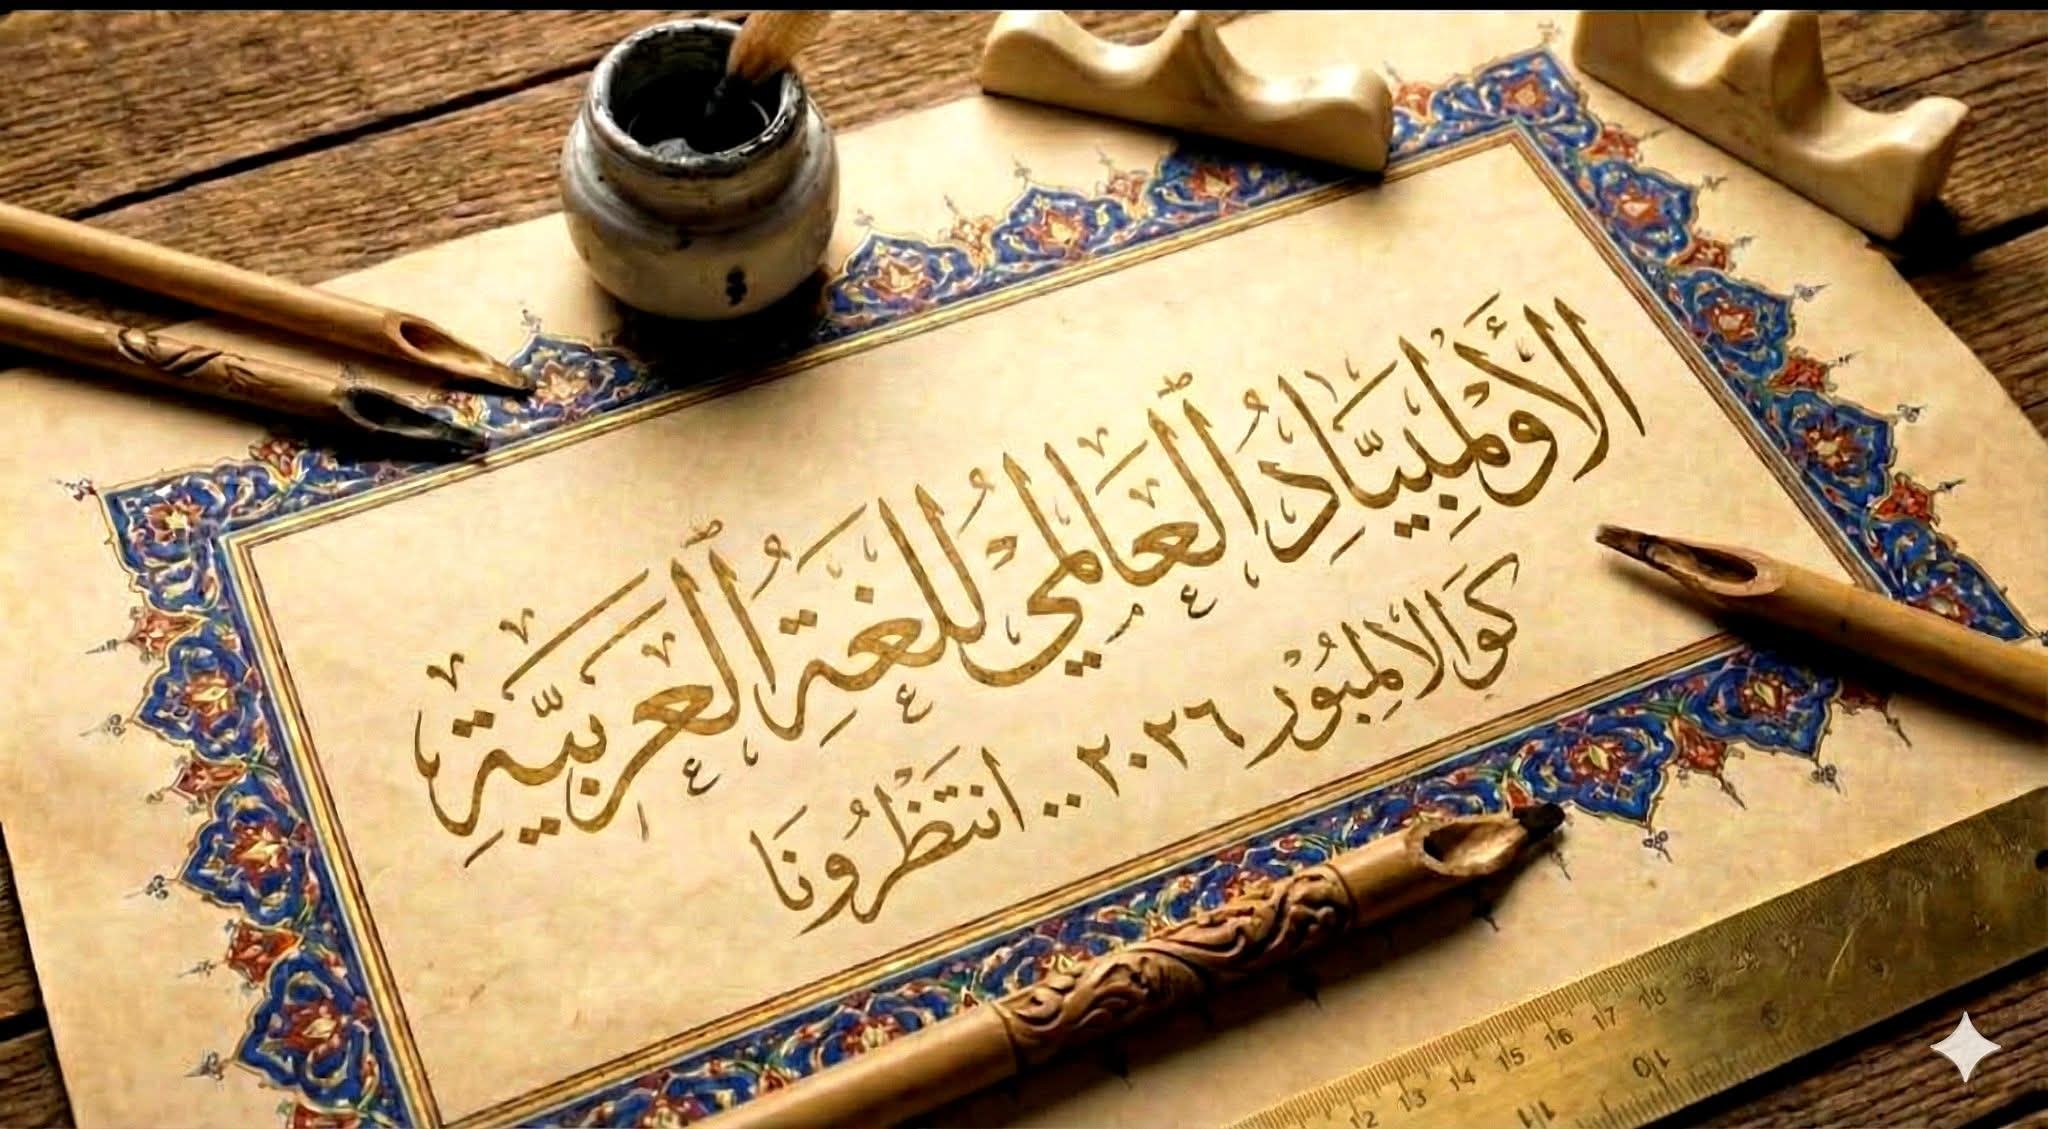 الأُولِمْبِيَّادُ ٱلْعَالَمِيُّ لِلُّغَةِ ٱلْعَرَبِيَّةِ
كَوَالَالَمْبُور ٢٠٢٦ .. انْتَظِرُونَا
12 13 14 15 16 17 18